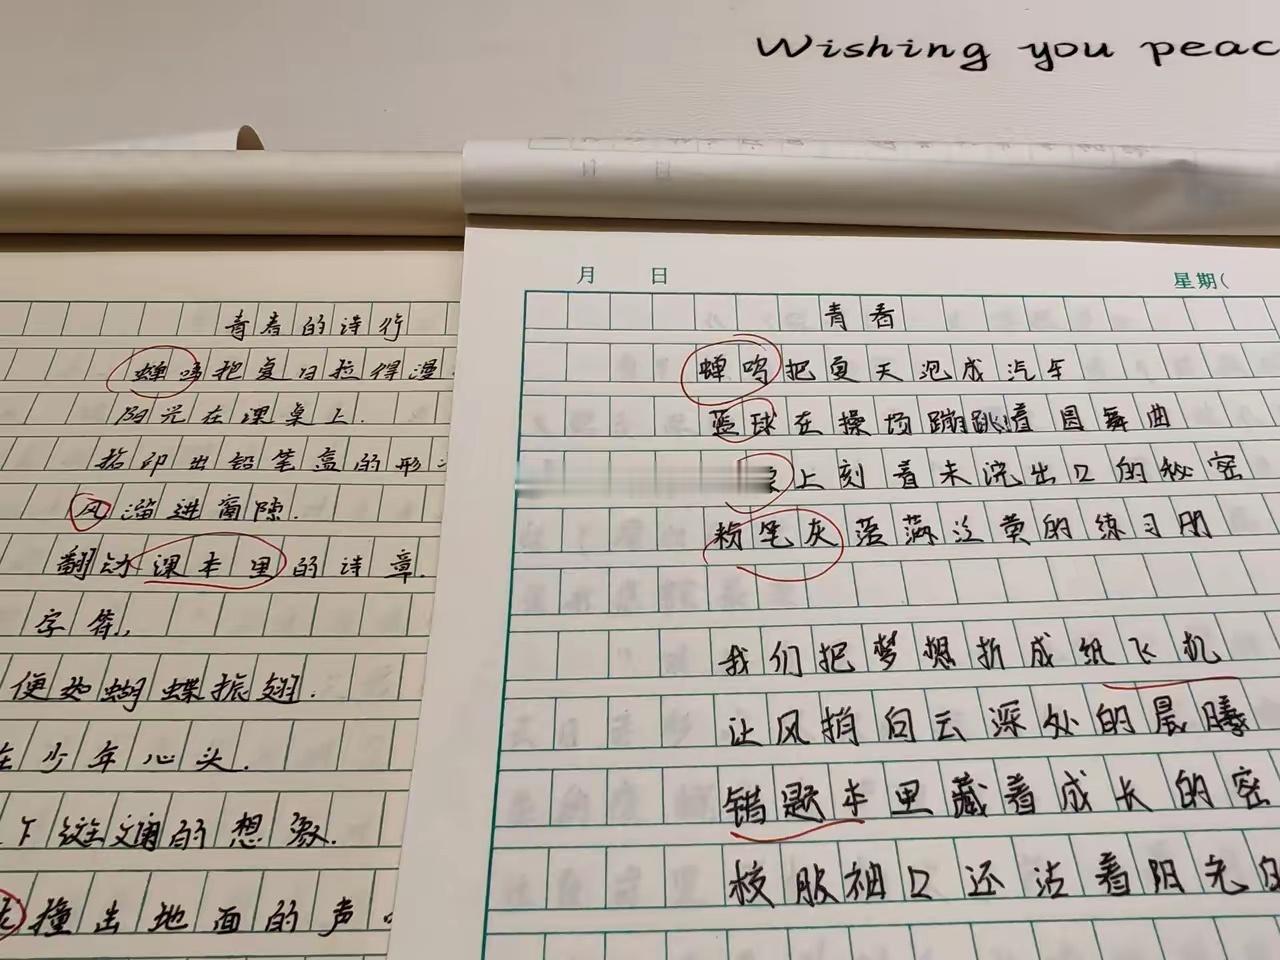 Wishing you peac
青春的诗行
蝉鸣把夏日拉得漫
阳光在课桌上.
拓印出铅笔盒的形
风溜进窗隙.
翻动课本里的诗章.
字符,
便如蝴蝶振翅.
在少年心头.
下的想象.
撞出地面的声
月 日
星期(
青春
蝉鸣把夏天泡成汽车
篮球在操场蹦跳着圆舞曲
上刻着未说出口的秘密
粉笔灰落满泛黄的练习册
我们把梦想折成纸飞机
让风捎向云深处的晨曦
错题本里藏着成长的密
校服袖口还沾着阳光的